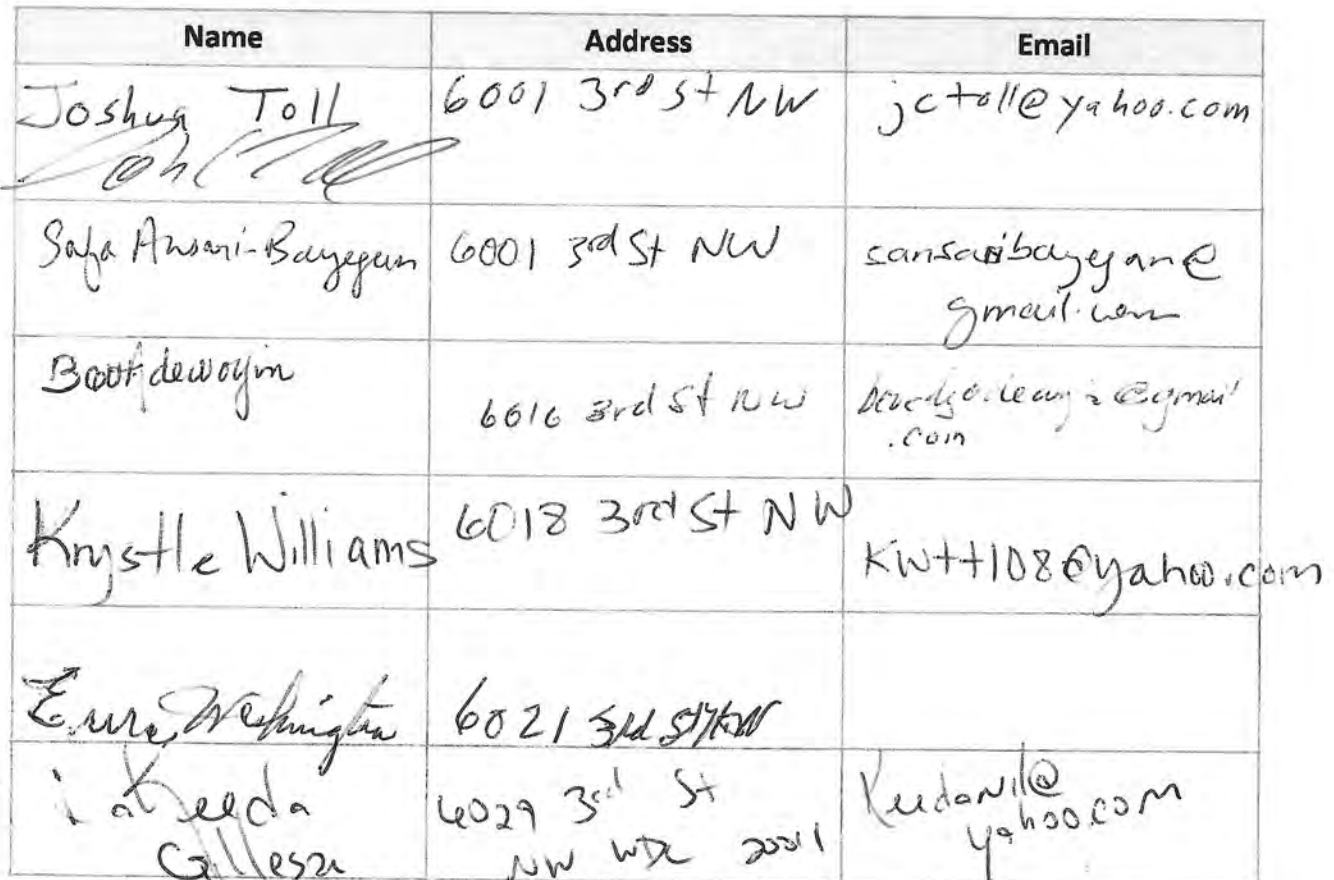 Name Address Email
Joshua Toll 6001 3rd St NW jctoll@yahoo.com
Safa Ansari-Bayegan 6001 3rd St NW sansaribayegan@
gmail.com
6016 3rd St NW @gmail
.com
Krystle Williams 6018 3rd St NW kwtt108@yahoo.com
Washington 6021 3rd St NW
LaKeeda 6029 3rd St
NW WDC 20011 yahoo.com